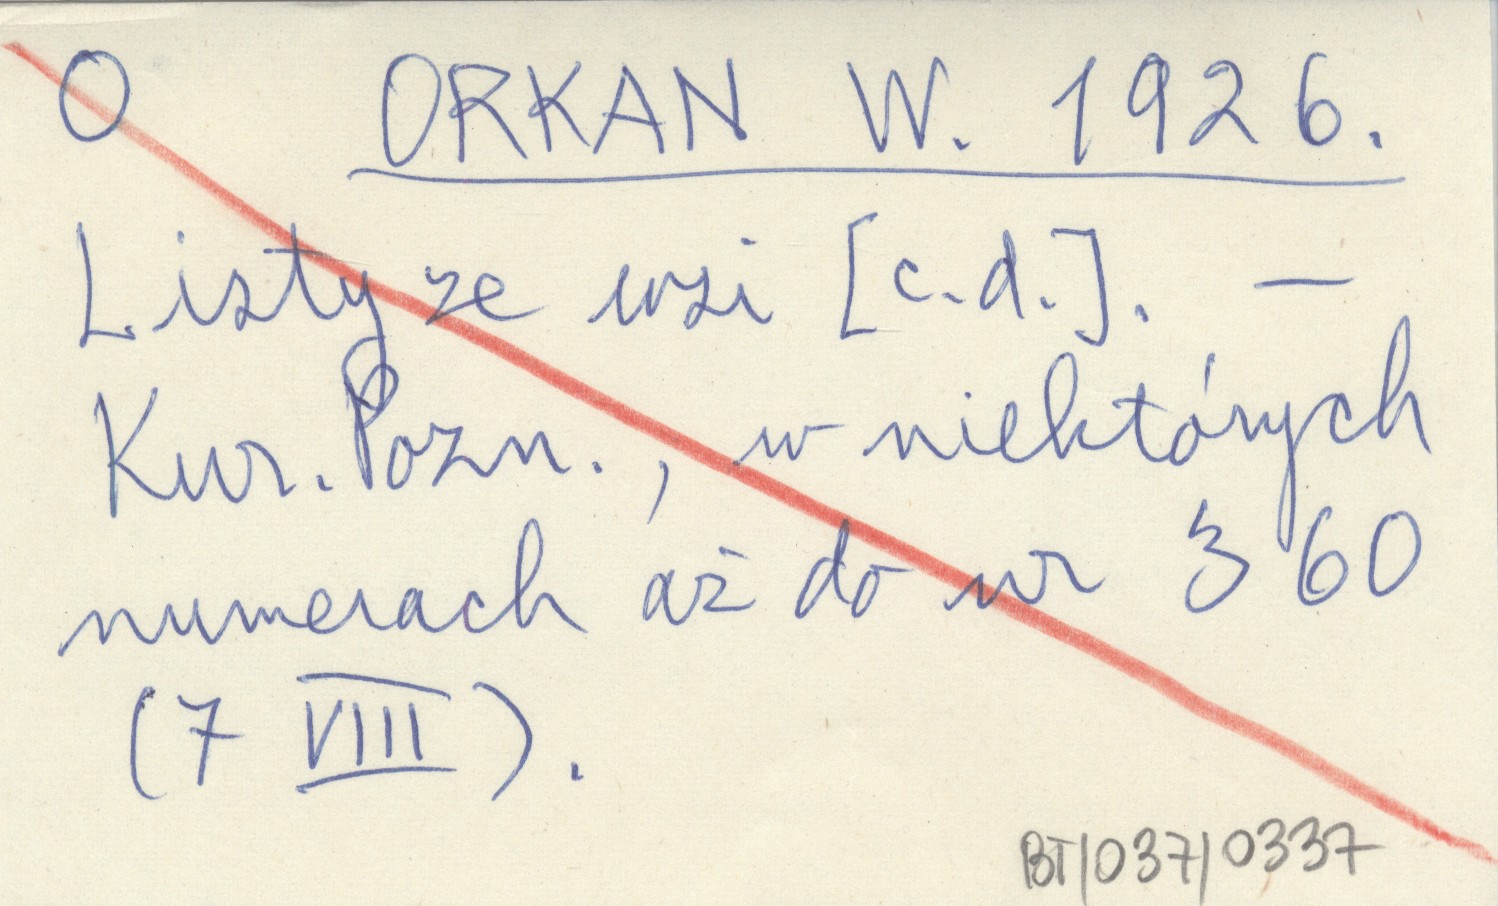 O ORKAN W. 1926.
Listy ze wsi [c.d.]. —
Kur. Pozn., w niektórych
numerach aż do nr 360
(7 VIII).
BT/037/0337